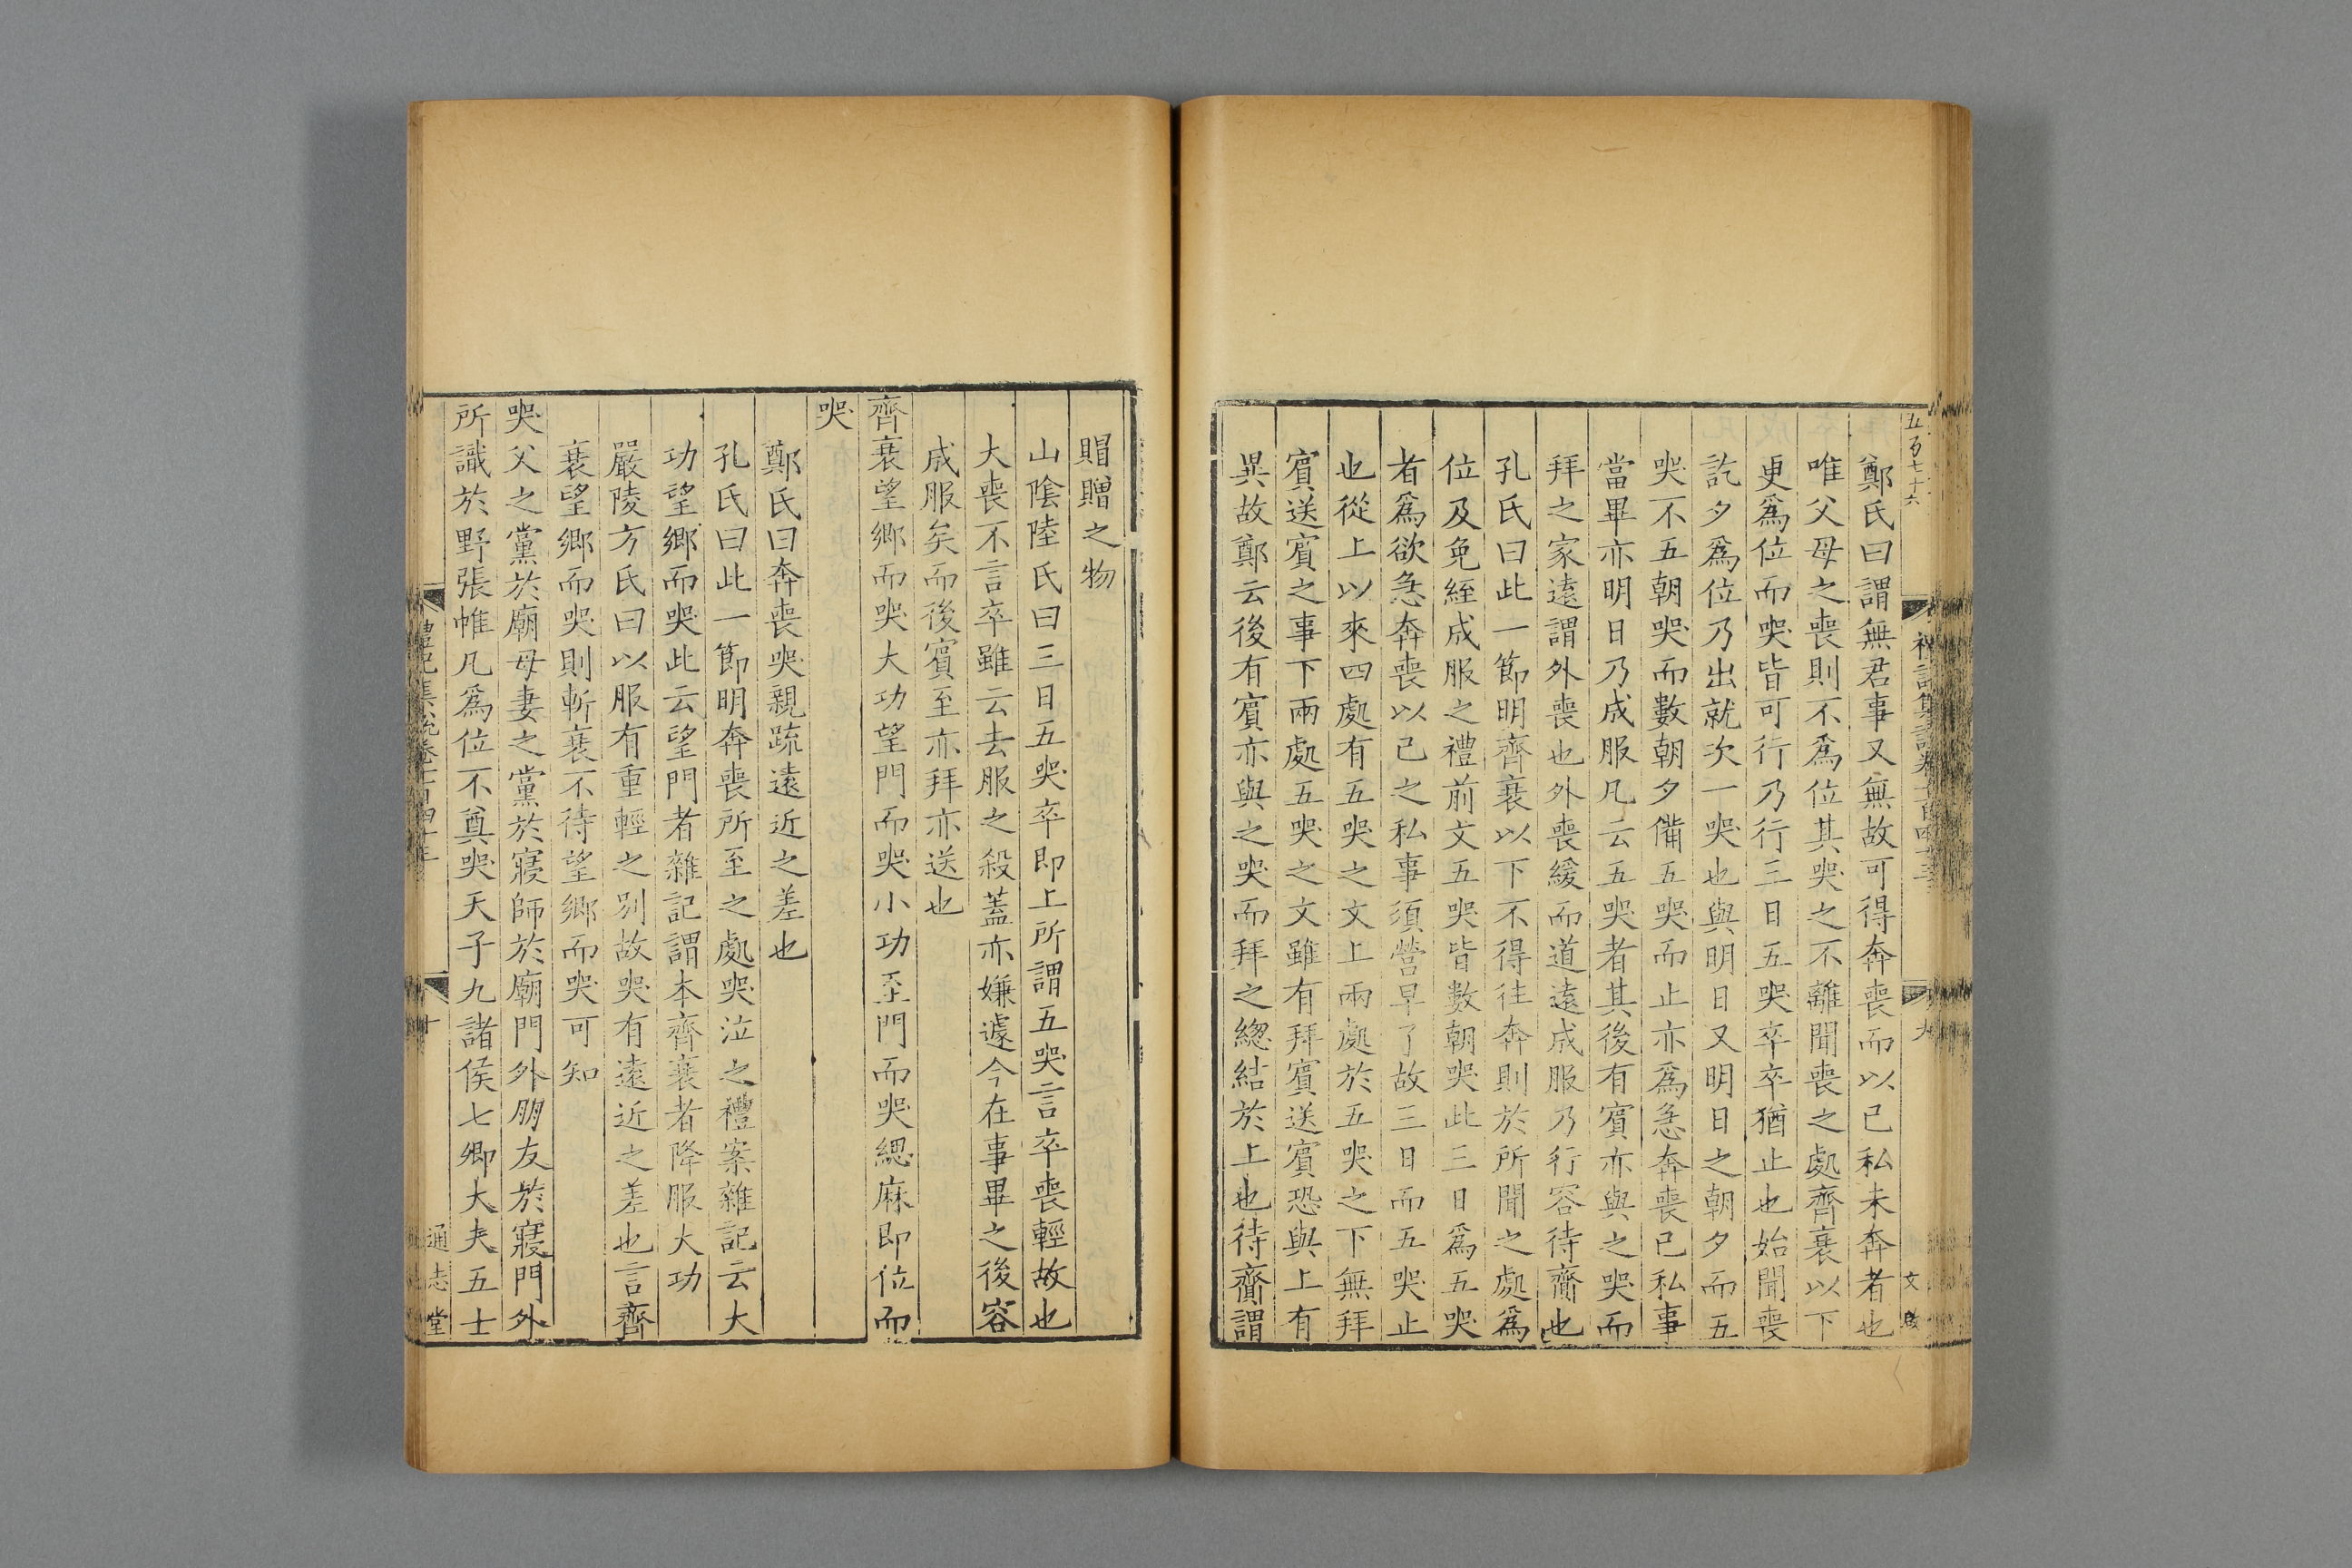 五百七十六
禮記集說卷一百四十三
九
文啟
鄭氏曰謂無君事又無故可得奔喪而以已私未奔者也
唯父母之喪則不爲位其哭之不離聞喪之處齊衰以下
更爲位而哭皆可行乃行三日五哭卒卒猶止也始聞喪
訖夕爲位乃出就次一哭也與明日又明日之朝夕而五
哭不五朝哭而數朝夕備五哭而止亦爲急奔喪已私事
當畢亦明日乃成服凡云五哭者其後有賓亦與之哭而
拜之家遠謂外喪也外喪緩而道遠成服乃行容待齎也
孔氏曰此一節明齊衰以下不得往奔則於所聞之處爲
位及免絰成服之禮前文五哭皆數朝哭此三日爲五哭
者爲欲急奔喪以己之私事須營早了故三日而五哭止
也從上以來四處有五哭之文上兩處於五哭之下無拜
賓送賓之事下兩處五哭之文雖有拜賓送賓恐與上有
異故鄭云後有賓亦與之哭而拜之緫結於上也待齎謂
賵贈之物
山陰陸氏曰三日五哭卒即上所謂五哭言卒喪輕故也
大喪不言卒雖云去服之殺蓋亦嫌遽今在事畢之後容
成服矣而後賓至亦拜亦送也
齊衰望鄉而哭大功望門而哭小功至門而哭緦麻即位而
哭
鄭氏曰奔喪哭親疏遠近之差也
孔氏曰此一節明奔喪所至之處哭泣之禮案雜記云大
功望鄉而哭此云望門者雜記謂本齊衰者降服大功
嚴陵方氏曰以服有重輕之別故哭有遠近之差也言齊
衰望鄉而哭則斬衰不待望鄉而哭可知
哭父之黨於廟母妻之黨於寢師於廟門外朋友於寢門外
所識於野張帷凡爲位不奠哭天子九諸侯七卿大夫五士
禮記集說卷一百四十三
十
通志堂